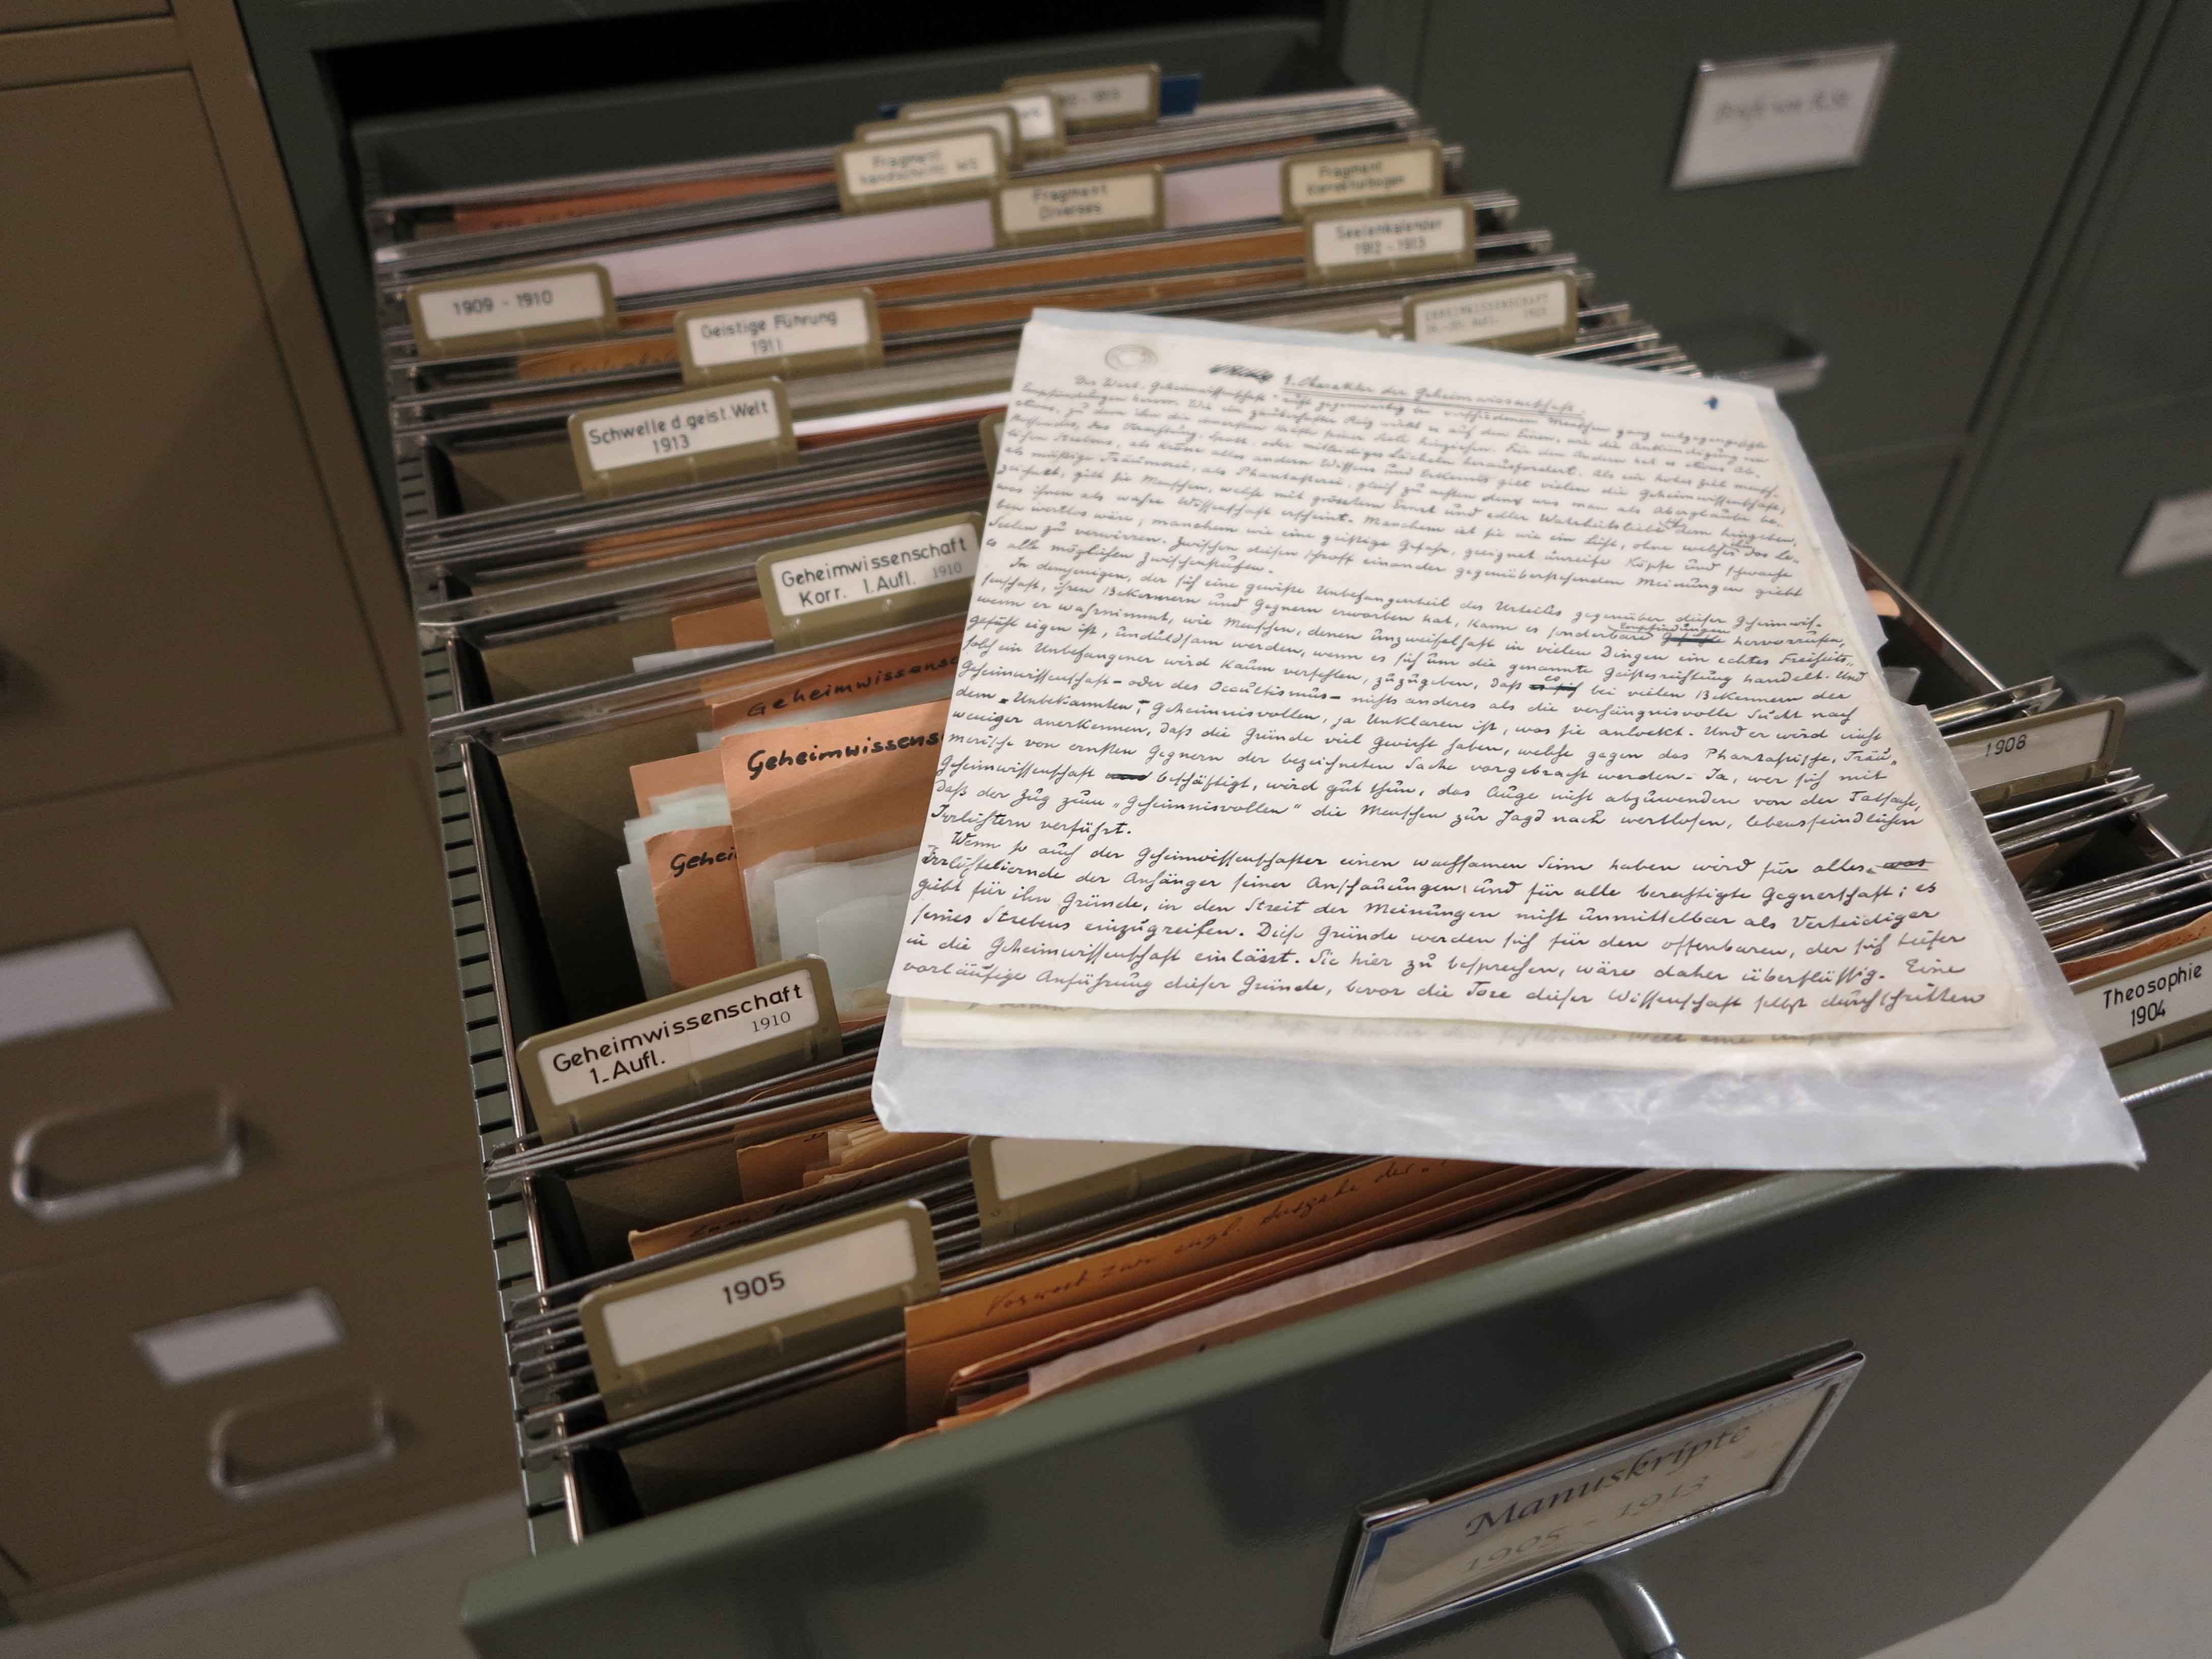 Fragment
Fragment
Diverses
Fragment
Korrekturbogen
Seelenkalender
1912 - 1913
1909 - 1910
Geistige Führung
1911
GEHEIMWISSENSCHAFT
Schwelle d. geist. Welt
1913
Geheimwissenschaft
Korr. 1. Aufl. 1910
Geheimwissensc
Geheimwissens
Gehei
Geheimwissenschaft
1. Aufl. 1910
1908
Theosophie
1904
1905
Vorwort zur engl. Ausgabe der
Manuskripte
1905 - 1913
1. Charakter der Geheimwissenschaft.
Das Wort „Geheimwissenschaft" ruft gegenwärtig bei verschiedenen Menschen ganz entgegengesetzte
Empfindungen hervor. Wie ein zauberhafter Reiz wirkt es auf den Einen, wie die Ankündigung von
etwas, zu dem ihn die innersten Kräfte seiner Seele hinziehen. Für den Andern hat es etwas Ab-
stoßendes, das Verachtung, Spott oder mitleidiges Lächeln herausfordert. Als ein hohes Ziel mensch-
lichen Strebens, als Krone alles andern Wissens und Erkennens gilt vielen die Geheimwissenschaft;
als müßige Träumerei, als Phantasterei, gleich zu achten dem, was man als Aberglaube be-
zeichnet, gilt sie Menschen, welche mit grösstem Ernst und edler Wahrheitsliebe sich dem hingeben,
was ihnen als wahre Wissenschaft erscheint. Manchem ist sie wie ein Licht, ohne welches ihm das Le-
ben wertlos wäre; manchem wie eine geistige Gefahr, geeignet unreife Köpfe und schwache
Seelen zu verwirren. Zwischen diesen schroff einander gegenüberstehenden Meinungen giebt
es alle möglichen Zwischenstufen.
In demjenigen, der sich eine gewisse Unbefangenheit des Urteiles gegenüber dieser Geheimwis-
senschaft, ihren Bekennern und Gegnern erworben hat, kann es sonderbare Empfindungen Gefühle hervorrufen,
wenn er wahrnimmt, wie Menschen, denen unzweifelhaft in vielen Dingen ein echtes Freiheits-
gefühl eigen ist, unduldsam werden, wenn es sich um die genannte Geistesrichtung handelt. Und
solch ein Unbefangener wird kaum verfehlen, zuzugeben, daß es bei vielen Bekennern der
Geheimwissenschaft - oder des Occultismus - nichts anderes als die verhängnisvolle Sucht nach
dem „Unbekannten", Geheimnisvollen, ja Unklaren ist, was sie anlockt. Und er wird nicht
weniger anerkennen, daß die Gründe viel Gewicht haben, welche gegen das Phantastische, Träu-
merische von ernsten Gegnern der bezeichneten Sache vorgebracht werden. Ja, wer sich mit
Geheimwissenschaft beschäftigt, wird gut thun, das Auge nicht abzuwenden von der Tatsache,
daß der Zug zum „Geheimnisvollen" die Menschen zur Jagd nach wertlosen, lebensfeindlichen
Irrlichtern verführt.
Wenn so auch der Geheimwissenschafter einen wachsamen Sinn haben wird für alles was
Irrlichtelierende der Anhänger seiner Anschauungen, und für alle berechtigte Gegnerschaft; es
giebt für ihn Gründe, in den Streit der Meinungen nicht unmittelbar als Verteidiger
seines Strebens einzugreifen. Diese Gründe werden sich für den offenbaren, der sich tiefer
in die Geheimwissenschaft einlässt. Sie hier zu besprechen, wäre daher überflüssig. Eine
vorläufige Anführung dieser Gründe, bevor die Tore dieser Wissenschaft selbst durchschritten